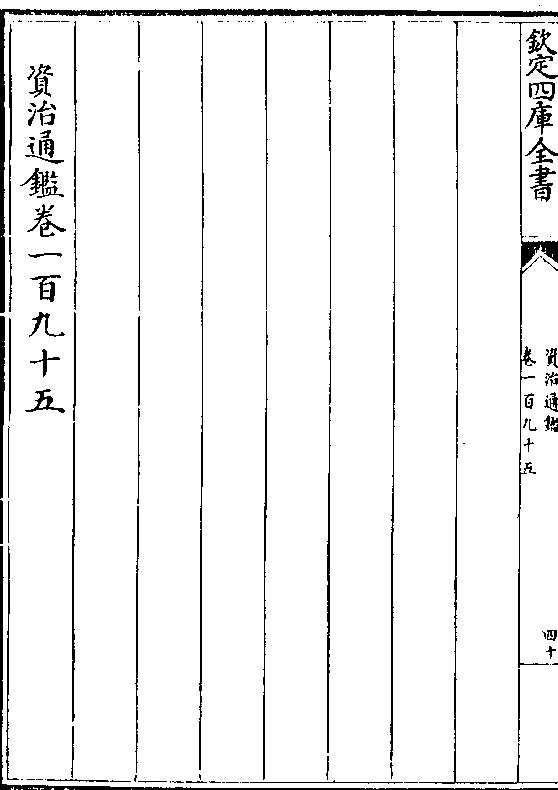 欽定四庫全書
資治通鑑
卷一百九十五
四十
資治通鑑卷一百九十五